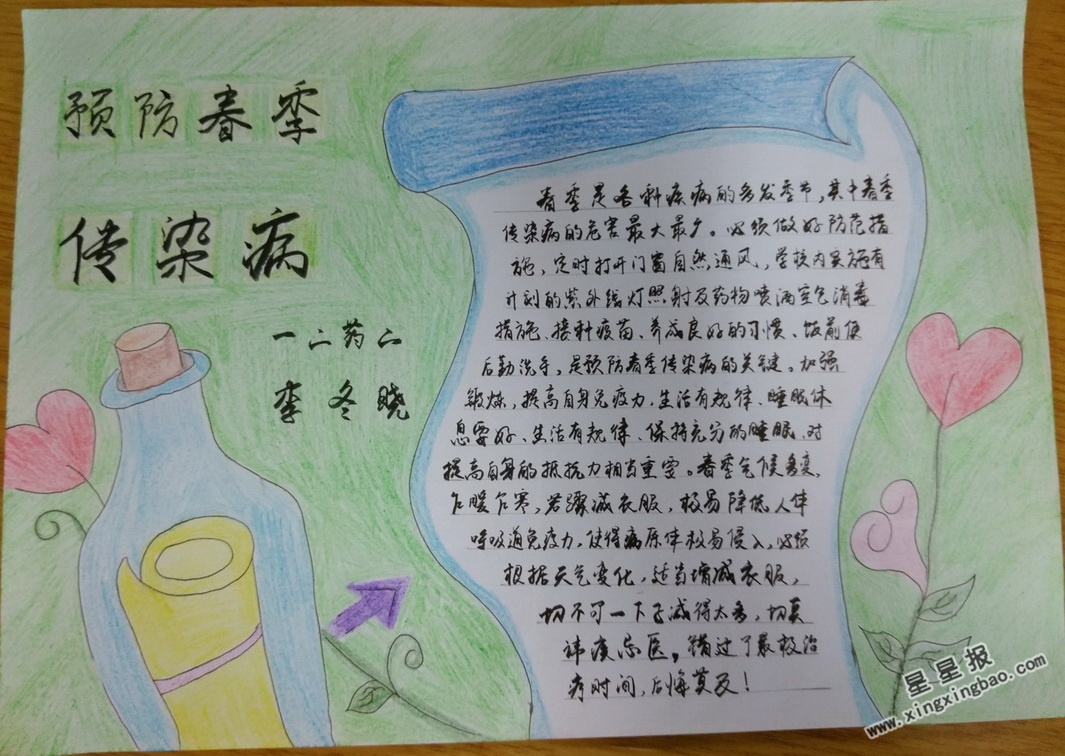 预防春季
传染病
一二药二
李冬晓
春季是各种疾病的多发季节，其中春季
传染病的危害最大最多。必须做好防范措
施，定时打开门窗自然通风，学校内实施有
计划的紫外线灯照射及药物喷洒空气消毒
措施、接种疫苗、养成良好的习惯、饭前便
后勤洗手，是预防春季传染病的关键。加强
锻炼，提高自身免疫力，生活有规律、睡眠休
息要好、生活有规律、保持充分的睡眠、对
提高自身的抵抗力相当重要。春季气候多变，
乍暖乍寒，若骤减衣服，极易降低人体
呼吸道免疫力，使得病原体极易侵入，必须
根据天气变化，适当增减衣服，
切不可一下子减得太多，切莫
讳疾忌医，错过了最极治
疗时间，后悔莫及！
星星报
www.xingxingbao.com